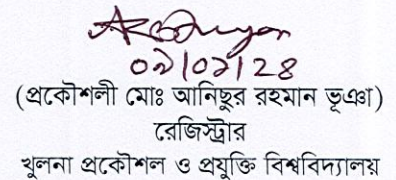 ০১/০১/২৪
(প্রকৌশলী মোঃ আনিছুর রহমান ভূঞা)
রেজিস্ট্রার
খুলনা প্রকৌশল ও প্রযুক্তি বিশ্ববিদ্যালয়